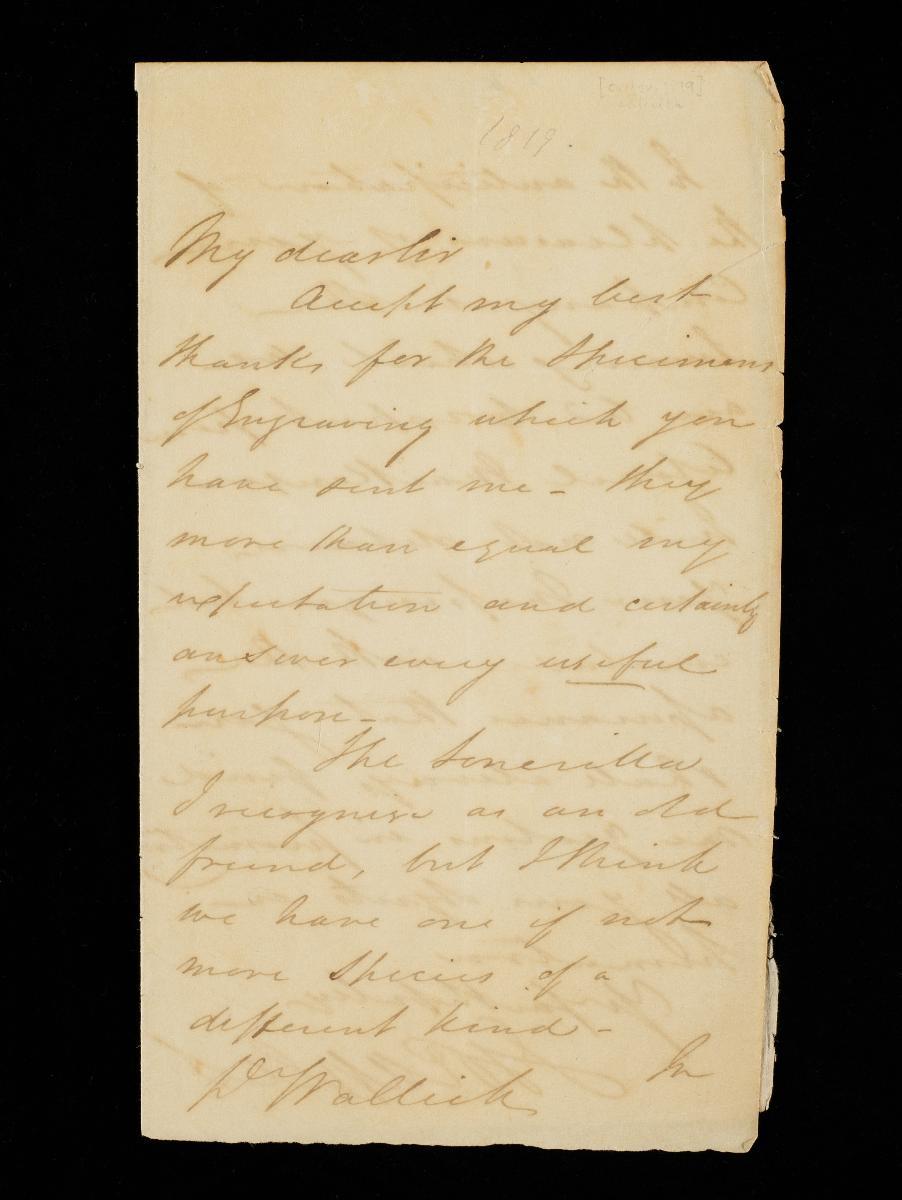 1819.
My dear Sir
Accept my best
thanks for the Specimens
of Engraving which you
have sent me - they
more than equal my
expectation and certainly
answer every useful
purpose -
The Sonerilla
I recognise as an old
friend, but I think
we have one if not
more Species of a
different kind -
In
Dr Wallich